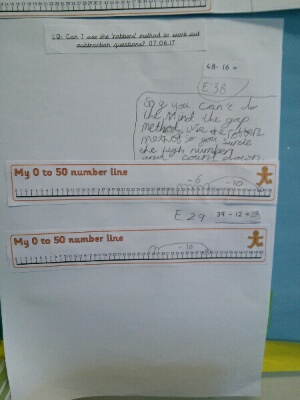 LQ: Can I use the 'robbers' method to work out
subtraction questions? 07.06.17
48 - 16 =
E38
So if you can't do
the Mind the gap
method use the robbers
method so you circle
the high number
and count down
My 0 to 50 number line
-6
-10
E 29
39 - 12 =
My 0 to 50 number line
-10